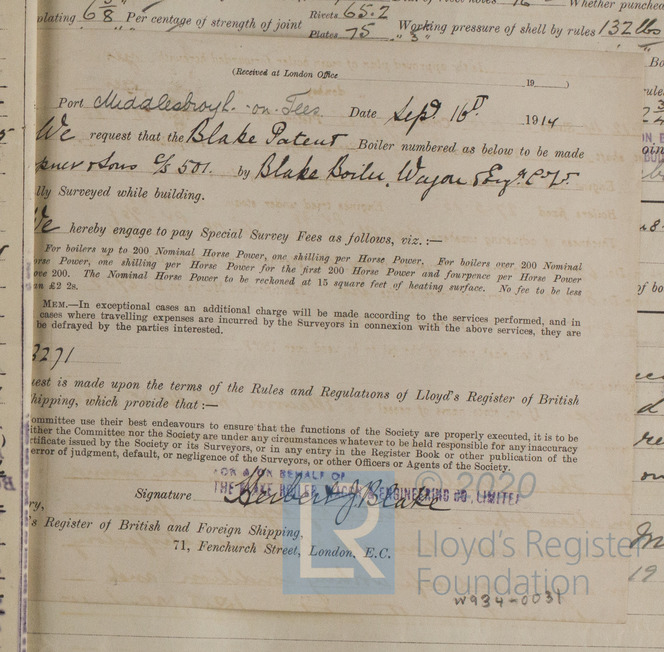 plating 68 5/8 Per centage of strength of joint Rivets 65.2 Plates 75 Working pressure of shell by rules 132 lbs
Whether punched
(Received at London Office 19 )
Port Middlesbrogh-on-Tees Date Sept 16th 1914
We request that the Blake Patent Boiler numbered as below to be made
& Sons c/s 501. by Blake Boiler, Wagon & Eng. Co Ld.
lly Surveyed while building.
We hereby engage to pay Special Survey Fees as follows, viz. :—
For boilers up to 200 Nominal Horse Power, one shilling per Horse Power. For boilers over 200 Nominal
orse Power, one shilling per Horse Power for the first 200 Horse Power and fourpence per Horse Power
ove 200. The Nominal Horse Power to be reckoned at 15 square feet of heating surface. No fee to be less
an £2 2s.
MEM.—In exceptional cases an additional charge will be made according to the services performed, and in
cases where travelling expenses are incurred by the Surveyors in connexion with the above services, they are
be defrayed by the parties interested.
3271
uest is made upon the terms of the Rules and Regulations of Lloyd's Register of British
hipping, which provide that :—
ommittee use their best endeavours to ensure that the functions of the Society are properly executed, it is to be
ither the Committee nor the Society are under any circumstances whatever to be held responsible for any inaccuracy
rtificate issued by the Society or its Surveyors, or in any entry in the Register Book or other publication of the
error of judgment, default, or negligence of the Surveyors, or other Officers or Agents of the Society.
FOR & ON BEHALF OF
THE BLAKE BOILER WAGON & ENGINEERING CO. LIMITED
Signature Herbert J. Blake
ry,
's Register of British and Foreign Shipping,
71, Fenchurch Street, London, E.C.
© 2020
LR Lloyd's Register
Foundation
W934-0031